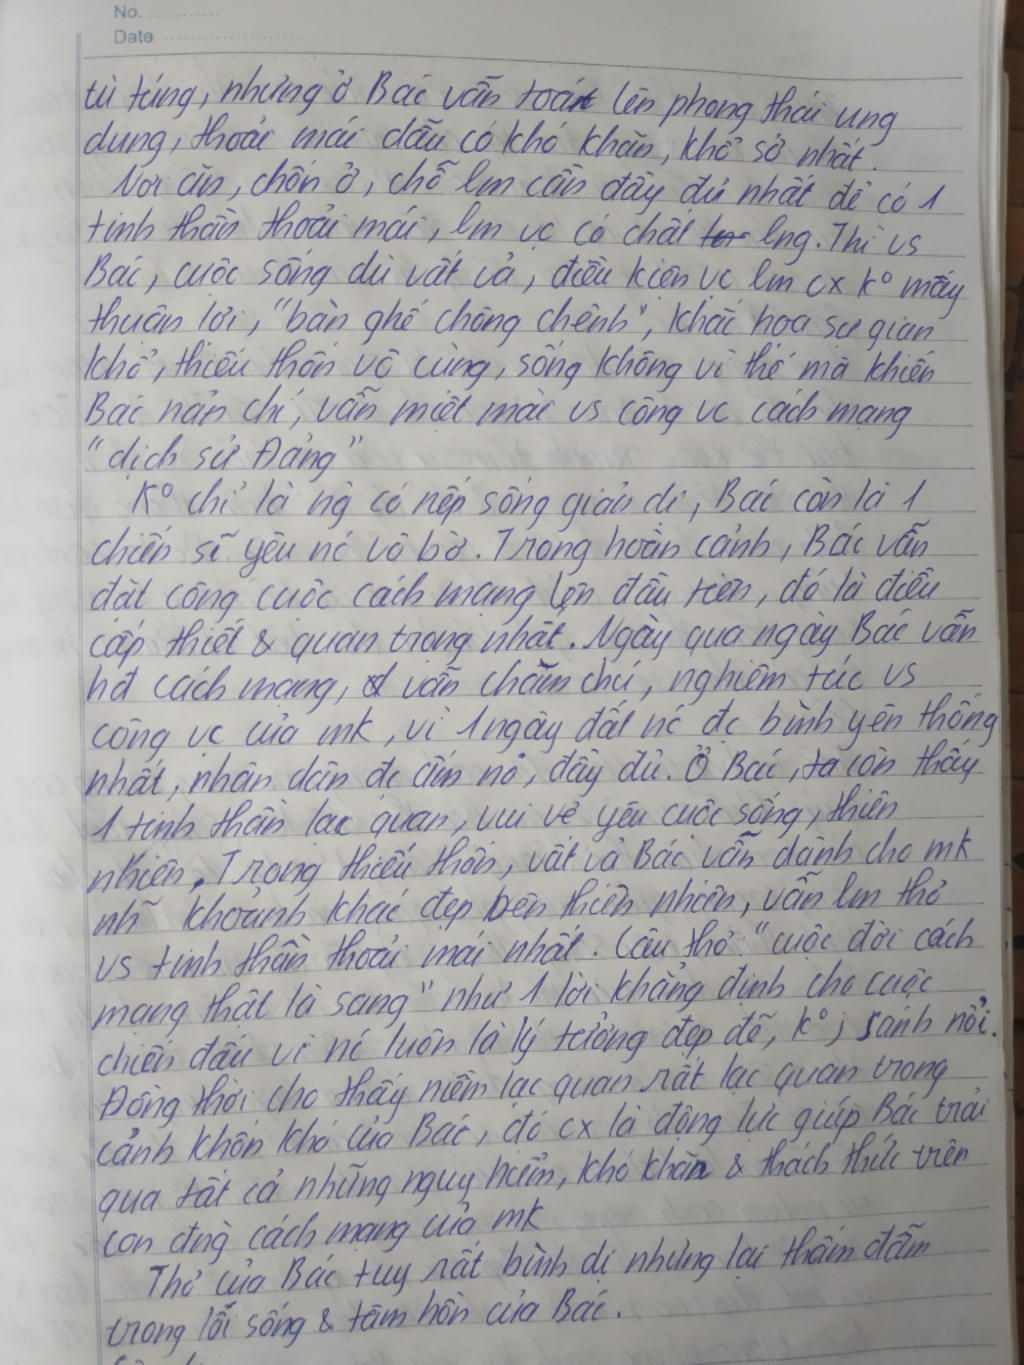 No. ............
Date ......................
tù túng, nhưng ở Bác vẫn toát lên phong thái ung
dung, thoải mái dẫu có khó khăn, khổ sở nhất.
Nơi ăn, chốn ở, chỗ lm cần đầy đủ nhất để có 1
tinh thần thoải mái, lm vc có chất lng. Thì vs
Bác, cuộc sống dù vất vả, điều kiện vc lm cx k° mấy
thuận lợi, "bàn ghế chông chênh", khắc họa sự gian
khổ, thiếu thốn vô cùng, sống không vì thế mà khiến
Bác nản chí, vẫn miệt mài vs công vc cách mạng
"dịch sử Đảng"
K° chỉ là ng có nếp sống giản dị, Bác còn là 1
chiến sĩ yêu nc vô bờ. Trong hoàn cảnh, Bác vẫn
đặt công cuộc cách mạng lên đầu tiên, đó là điều
cấp thiết & quan trọng nhất. Ngày qua ngày Bác vẫn
hđ cách mạng, vẫn chăm chú, nghiêm túc vs
công vc của mk, vì 1 ngày đất nc đc bình yên thống
nhất, nhân dân đc ấm no, đầy đủ. Ở Bác, ta còn thấy
1 tinh thần lạc quan, vui vẻ yêu cuộc sống, thiên
nhiên. Trong thiếu thốn, vất vả Bác vẫn dành cho mk
nh~ khoảnh khắc đẹp bên thiên nhiên, vẫn lm thơ
vs tinh thần thoải mái nhất. Câu thơ: "cuộc đời cách
mạng thật là sang" như 1 lời khẳng định cho cuộc
chiến đấu vì nc luôn là lý tưởng đẹp đẽ, k° j sánh nổi.
Đồng thời cho thấy niềm lạc quan rất lạc quan trong
cảnh khốn khó của Bác, đó cx là động lực giúp Bác trải
qua tất cả những nguy hiểm, khó khăn & thách thức trên
con đng cách mạng của mk
Thơ của Bác tuy rất bình dị nhưng lại thấm đẫm
trong lối sống & tâm hồn của Bác.